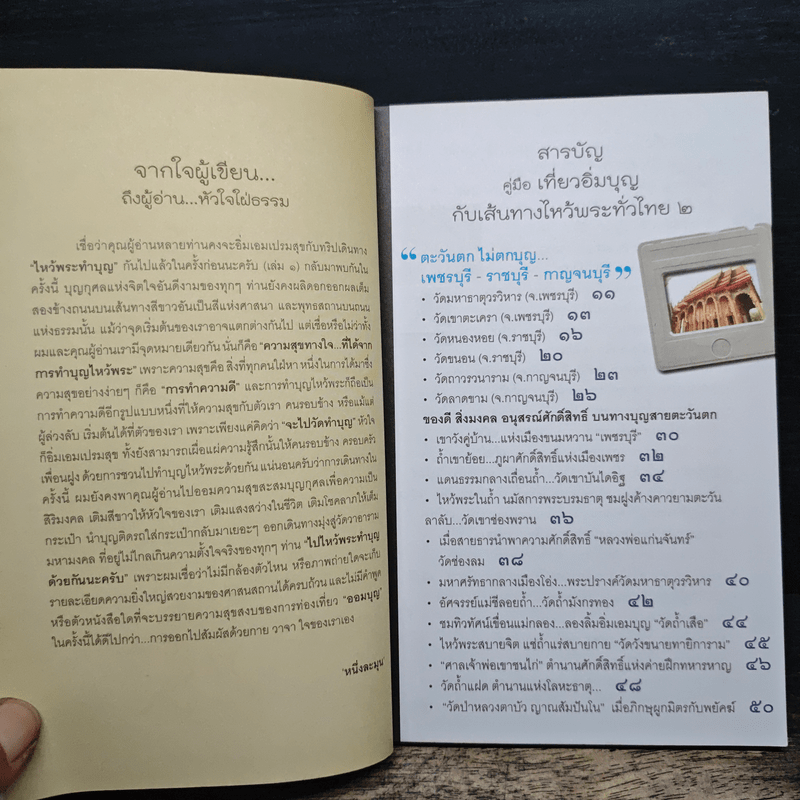 จากใจผู้เขียน...
ถึงผู้อ่าน...หัวใจใฝ่ธรรม
เชื่อว่าคุณผู้อ่านหลายท่านคงจะอิ่มเอมเปรมสุขกับทริปเดินทาง
"ไหว้พระทำบุญ" กันไปแล้วในครั้งก่อนนะครับ (เล่ม ๑) กลับมาพบกันใน
ครั้งนี้ ผมดูบุญกุศลแห่งจิตใจอันดีงามของทุกๆ ท่านยังคงผลิดอกออกผลเต็ม
สองข้างถนนบนเส้นทางสีขาวอันเป็นสื่แห่งศาสนา และพุทธสถานบนถนน
แห่งธรรมนั้น แม้ว่าจุดเริ่มต้นของเราอาจแตกต่างกันไป แต่เชื่อหรือไม่ว่าทั้ง
ผมและคุณผู้อ่านเรามีจุดหมายเดียวกัน นั่นก็คือ "ความสุขทางใจ...ที่ได้จาก
การทำบุญไหว้พระ" เพราะความสุขคือ สิ่งที่ทุกคนใฝ่หา หนึ่งในการได้มาซึ่ง
ความสุขอย่างง่ายๆ ก็คือ "การทำความดี" และการทำบุญไหว้พระก็ถือเป็น
การทำความดีอีกรูปแบบหนึ่งที่ให้ความสุขกับตัวเรา คนรอบข้าง หรือแม้แต่
ผู้ล่วงลับ เริ่มต้นได้ที่ตัวของเรา เพราะเพียงแค่คิดว่า "จะไปวัดทำบุญ" หัวใจ
ก็อิ่มเอมเปรมสุข ทั้งยังสามารถเผื่อแผ่ความรู้สึกนั้นให้คนรอบข้าง ครอบครัว
เพื่อนฝูง ด้วยการชวนไปทำบุญไหว้พระด้วยกัน แน่นอนครับว่าการเดินทางใน
ครั้งนี้ ผมยังคงพาคุณผู้อ่านไปออมความสุขสะสมบุญกุศลเพื่อความเป็น
สิริมงคล เติมสีขาวให้หัวใจของเรา เติมแสงสว่างในชีวิต เติมโชคลาภให้เต็ม
กระเป๋า นำบุญติดรถใส่กระเป๋ากลับมาเยอะๆ ออกเดินทางมุ่งสู่วัดวาอาราม
มหามงคล ที่อยู่ไม่ไกลเกินความตั้งใจจริงของทุกๆ ท่าน "ไปไหว้พระทำบุญ
ด้วยกันนะครับ" เพราะผมเชื่อว่าไม่มีกล้องตัวไหน หรือภาพถ่ายใดจะเก็บ
รายละเอียดความยิ่งใหญ่สวยงามของศาสนสถานได้ครบถ้วน และไม่มีคำพูด
หรือตัวหนังสือใดที่จะบรรยายความสุขสงบของการท่องเที่ยว "ออมบุญ"
ในครั้งนี้ได้ดีไปกว่า...การออกไปสัมผัสด้วยกาย วาจา ใจของเราเอง
'หนึ่งละมุน'
สารบัญ
คู่มือ เที่ยวอิ่มบุญ
กับเส้นทางไหว้พระทั่วไทย ๒
"ตะวันตก ไม่ตกบุญ...
เพชรบุรี - ราชบุรี - กาญจนบุรี"
• วัดมหาธาตุวรวิหาร (จ.เพชรบุรี) ๑๑
• วัดเขาตะเครา (จ.เพชรบุรี) ๑๓
• วัดหนองหอย (จ.ราชบุรี) ๑๖
• วัดขนอน (จ.ราชบุรี) ๒๐
• วัดถาวรวนาราม (จ.กาญจนบุรี) ๒๓
• วัดลาดขาม (จ.กาญจนบุรี) ๒๖
ของดี สิ่งมงคล อนุสรณ์ศักดิ์สิทธิ์ บนทางบุญสายตะวันตก
• เขาวังคู่บ้าน...แห่งเมืองขนมหวาน "เพชรบุรี" ๓๐
• ถ้ำเขาย้อย...ภูผาศักดิ์สิทธิ์แห่งเมืองเพชร ๓๒
• แดนธรรมกลางเถื่อนถ้ำ...วัดเขาบันไดอิฐ ๓๔
• ไหว้พระในถ้ำ นมัสการพระบรมธาตุ ชมฝูงค้างคาวยามตะวัน
ลาลับ...วัดเขาช่องพราน ๓๖
• เมื่อสายธารนำพาความศักดิ์สิทธิ์ "หลวงพ่อแก่นจันทร์"
วัดช่องลม ๓๘
• มหาศรัทธากลางเมืองโอ่ง...พระปรางค์วัดมหาธาตุวรวิหาร ๔๐
• อัศจรรย์แม่ชีลอยถ้ำ...วัดถ้ำมังกรทอง ๔๒
• ชมทิวทัศน์เขื่อนแม่กลอง...ลองลิ้มอิ่มเอมบุญ "วัดถ้ำเสือ" ๔๔
• ไหว้พระสบายจิต แช่ถ้ำแร่สบายกาย "วัดวังขนายทายิการาม" ๔๕
• "ศาลเจ้าพ่อเขาชนไก่" ตำนานศักดิ์สิทธิ์แห่งค่ายฝึกทหารหาญ ๔๖
• วัดถ้ำแฝด ตำนานแห่งโลหะธาตุ... ๔๘
• "วัดป่าหลวงตาบัว ญาณสัมปันโน" เมื่อภิกษุผูกมิตรกับพยัคฆ์ ๕๐